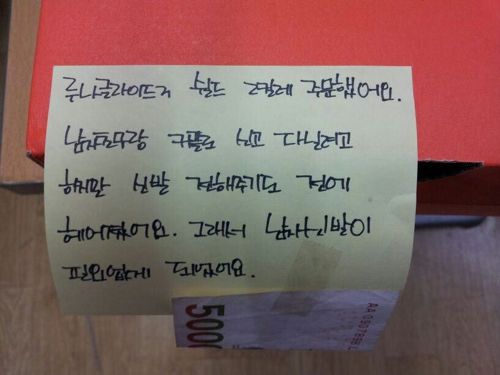 루나글라이드거 쉴드 2컬레 주문했어요.
남자친구랑 커플로 신고 다닐려고
하지만 신발 전해주기도 전에
헤어졌어요. 그래서 남자신발이
필요없게 되었어요.
5000
AA 0907898 L